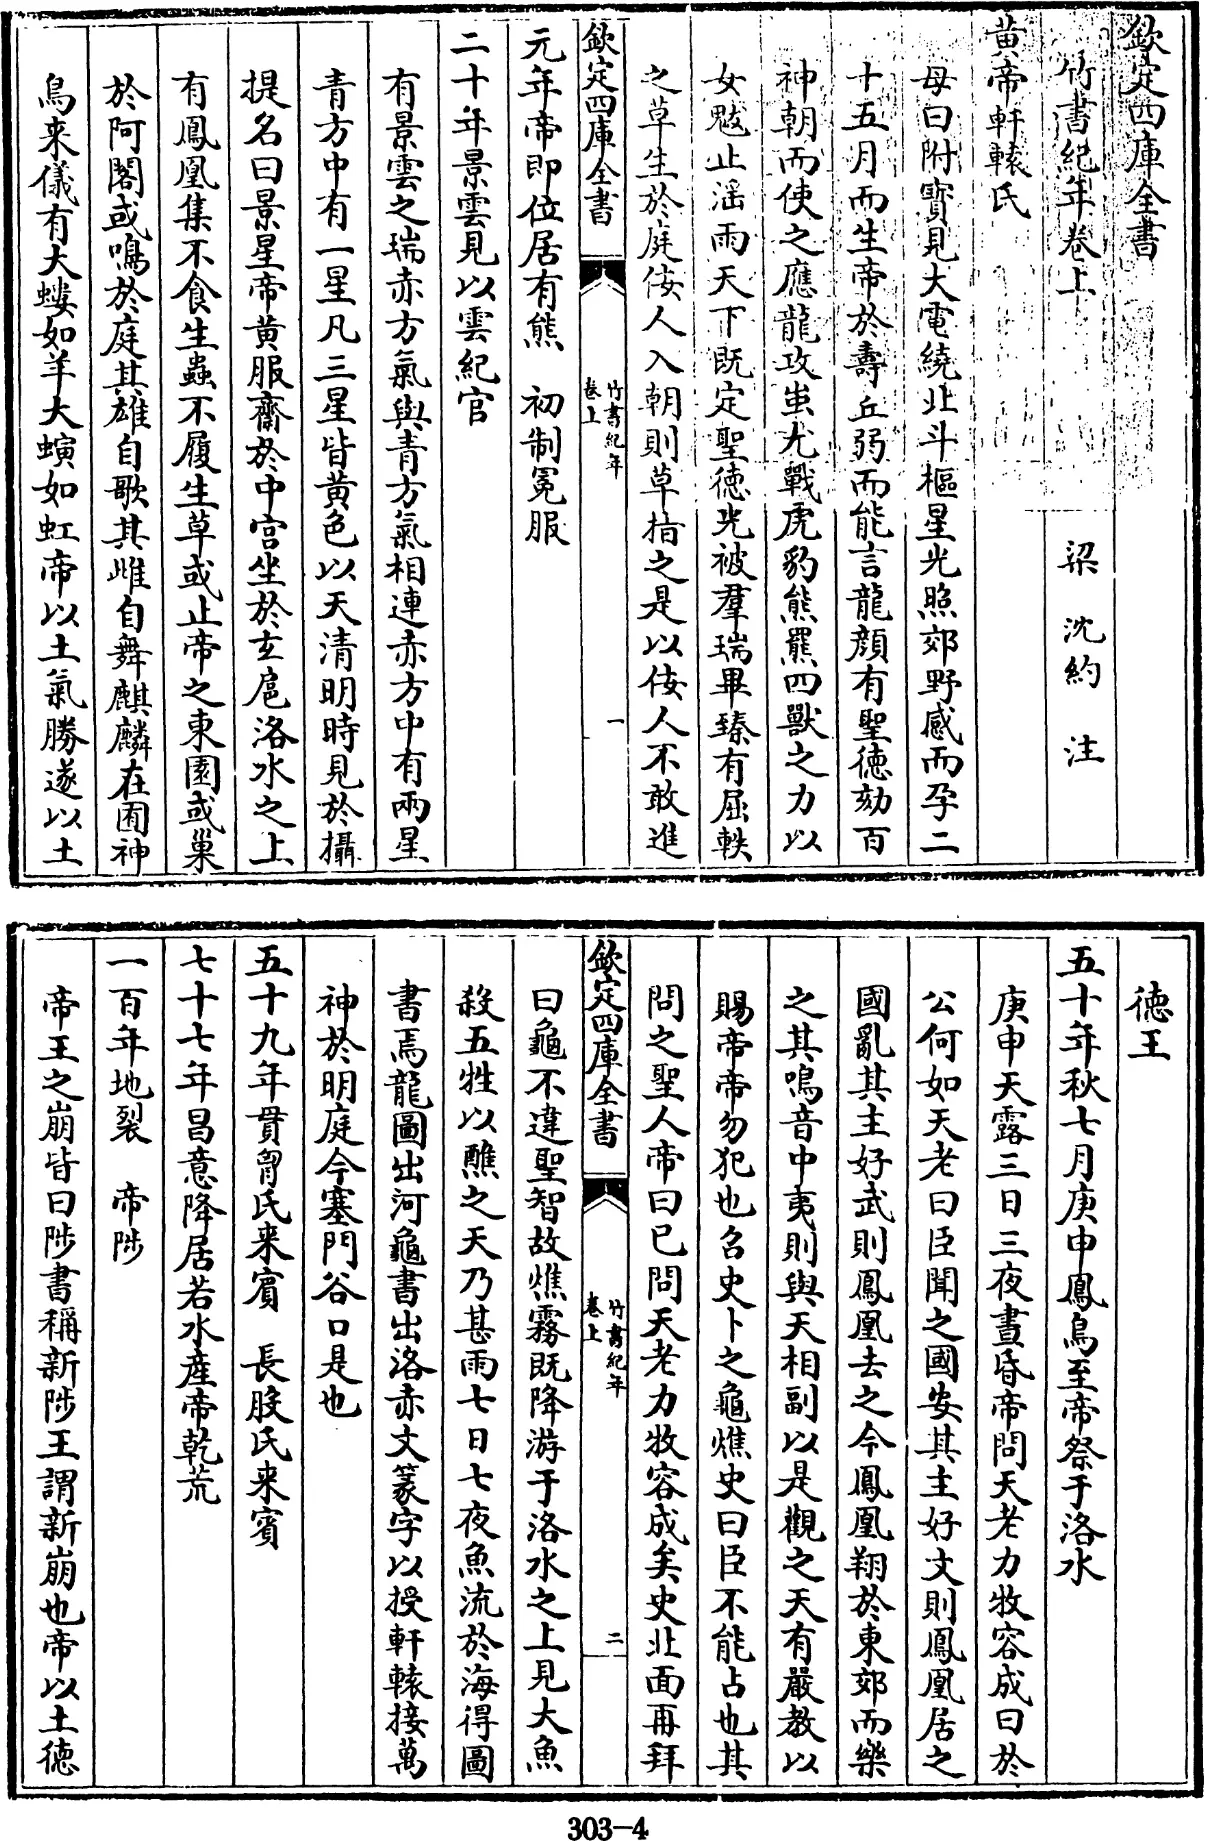 欽定四庫全書
竹書紀年卷上
梁 沈約 注
黄帝軒轅氏
母曰附寶見大電繞北斗樞星光照郊野感而孕二
十五月而生帝於壽丘弱而能言龍顔有聖德劾百
神朝而使之應龍攻蚩尤戰虎豹熊羆四獸之力以
女魃止滛雨天下既定聖德光被羣瑞畢臻有屈軼
之草生於庭佞人入朝則草指之是以佞人不敢進
欽定四庫全書
竹書紀年
卷上
一
元年帝即位居有熊 初制冕服
二十年景雲見以雲紀官
有景雲之瑞赤方氣與青方氣相連赤方中有兩星
青方中有一星凡三星皆黄色以天清明時見於攝
提名曰景星帝黄服齋於中宫坐於玄扈洛水之上
有鳳凰集不食生蟲不履生草或止帝之東園或巢
於阿閣或鳴於庭其雄自歌其雌自舞麒麟在囿神
鳥来儀有大螻如羊大螾如虹帝以土氣勝遂以土
德王
五十年秋七月庚申鳳鳥至帝祭于洛水
庚申天霧三日三夜晝昏帝問天老力牧容成曰於
公何如天老曰臣聞之國安其主好文則鳳凰居之
國亂其主好武則鳳凰去之今鳳凰翔於東郊而樂
之其鳴音中夷則與天相副以是觀之天有嚴教以
賜帝帝勿犯也召史卜之龜燋史曰臣不能占也其
問之聖人帝曰已問天老力牧容成矣史北面再拜
欽定四庫全書
竹書紀年
卷上
二
曰龜不違聖智故燋霧既降游于洛水之上見大魚
殺五牲以醮之天乃甚雨七日七夜魚流於海得圖
書焉龍圖出河龜書出洛赤文篆字以授軒轅接萬
神於明庭今塞門谷口是也
五十九年貫胷氏来賓 長股氏来賓
七十七年昌意降居若水產帝乾荒
一百年地裂 帝陟
帝王之崩皆曰陟書稱新陟王謂新崩也帝以土德
303-4